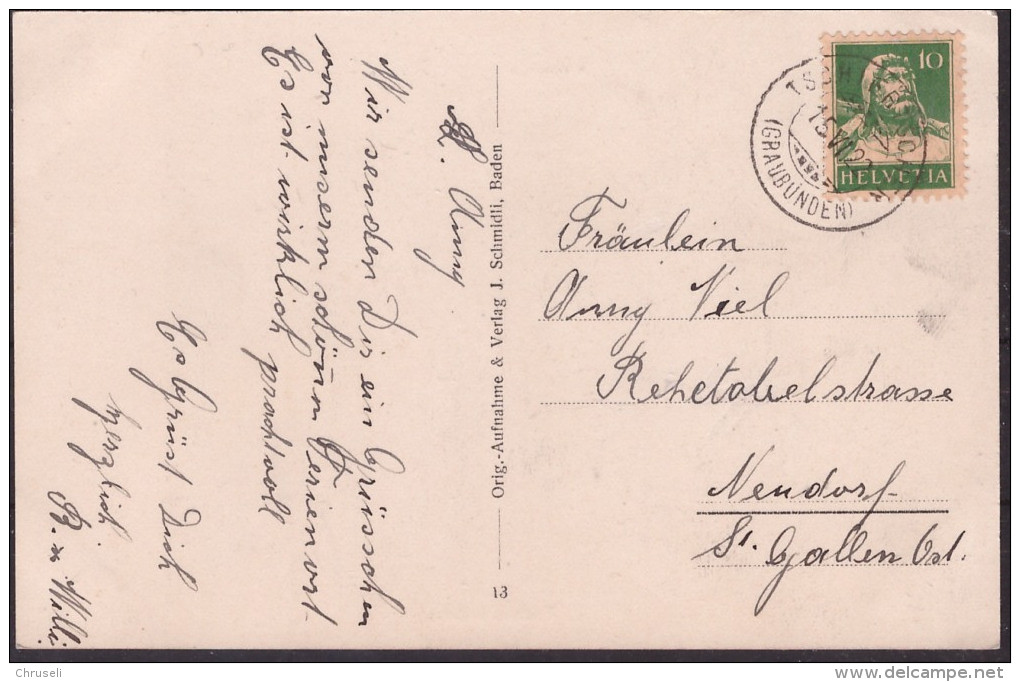 L. Anny
Wir senden Dir ein Grüsschen
von unserm schönen Ferienort
Es ist wirklich prachtvoll
Es Grüsst Dich
herzlich
R. u. Willi
Orig.-Aufnahme & Verlag J. Schmidli, Baden
13
10
HELVETIA
(GRAUBÜNDEN)
Fräulein
Anny Viel
Rehetobelstrasse
Neudorf
St. Gallen Ost.
© Chruseli
delcampe.net